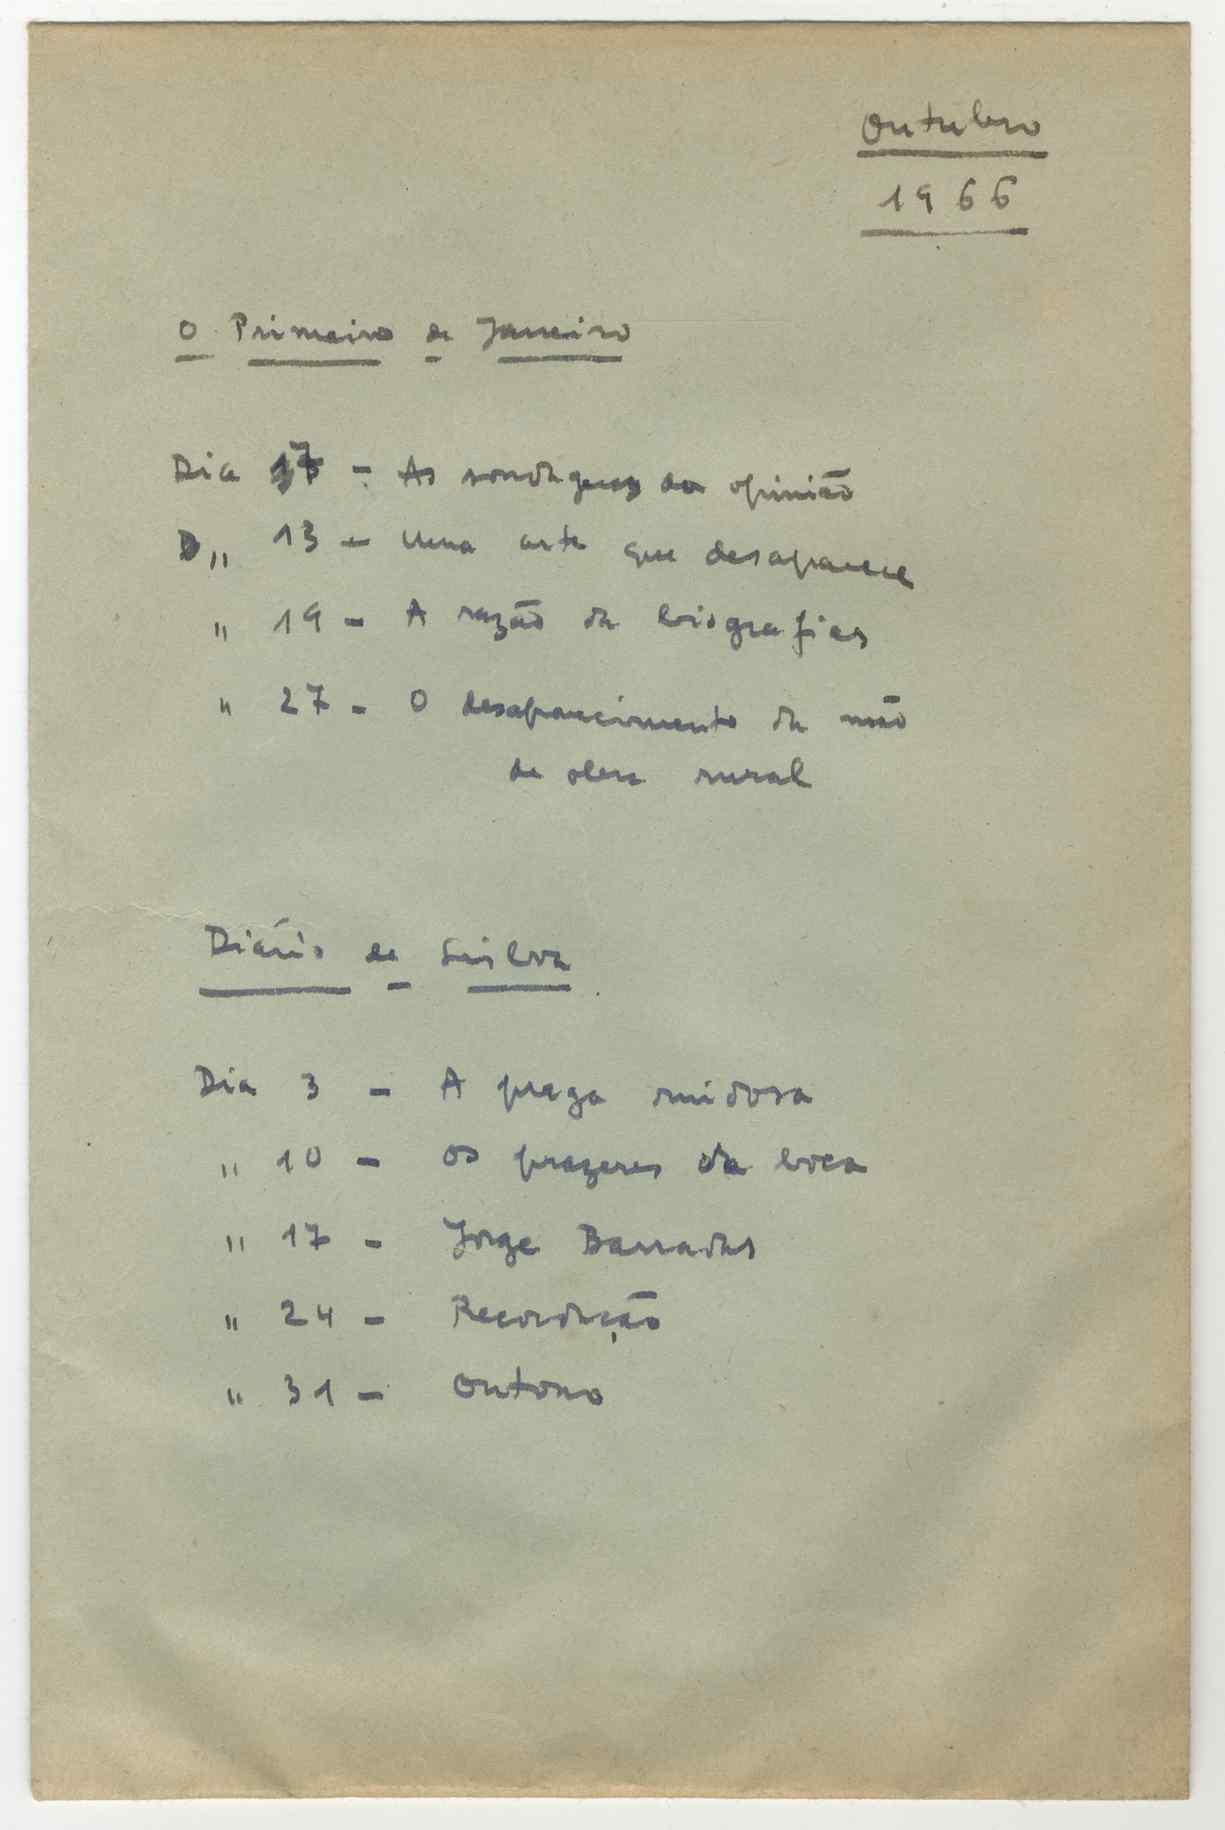 Outubro
1966
O Primeiro de Janeiro
Dia - As sondagens da opinião
" 13 - Uma arte que desaparece
" 19 - A razão da biografias
" 27 - O desaparecimento da mão
de obra rural
Diário de Lisboa
Dia 3 - A praga ruidosa
" 10 - Os prazeres da boca
" 17 - Jorge Barradas
" 24 - Recordação
" 31 - Outono